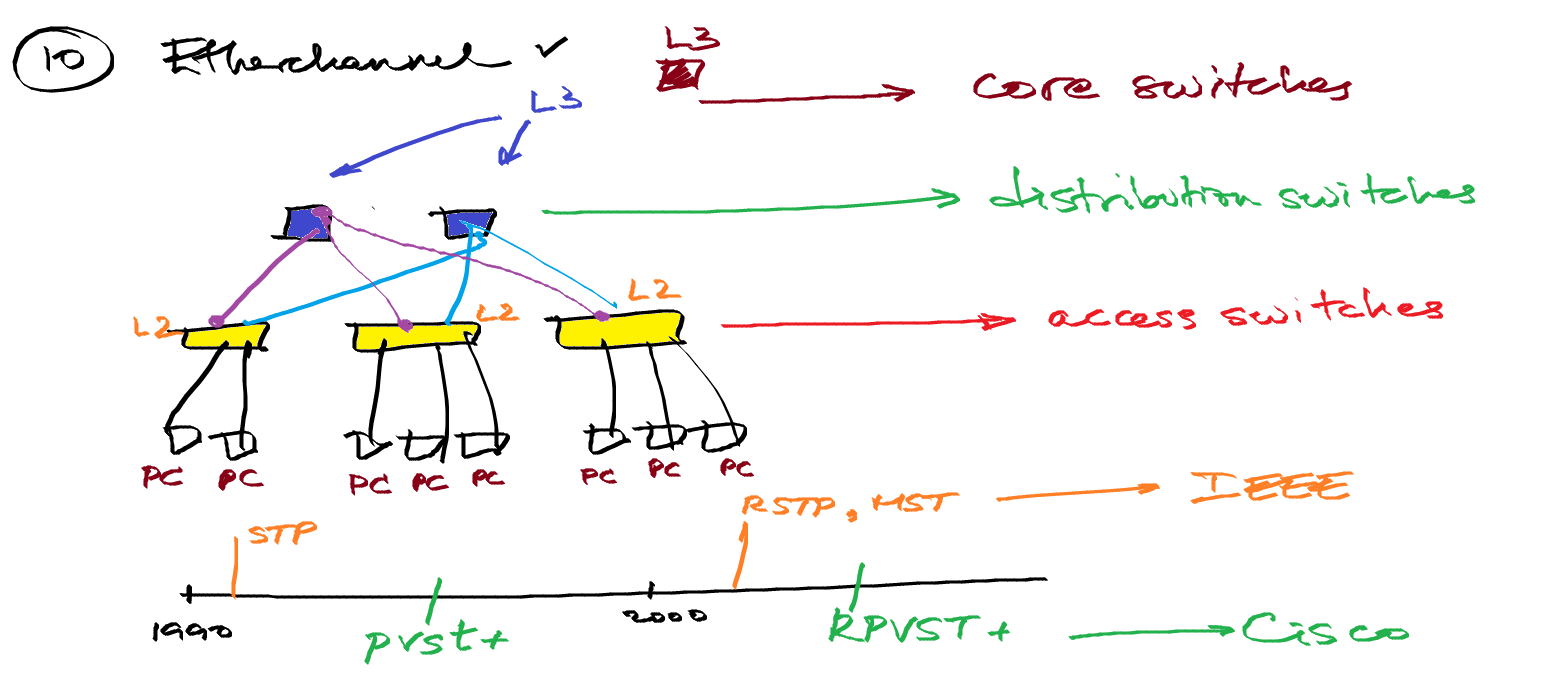 10 Etherchannel ✓
L3
core switches
L3
distribution switches
L2
L2
L2
access switches
PC PC PC PC PC PC PC PC
RSTP, MST IEEE
STP
1990 2000
pvst+ RPVST+ Cisco